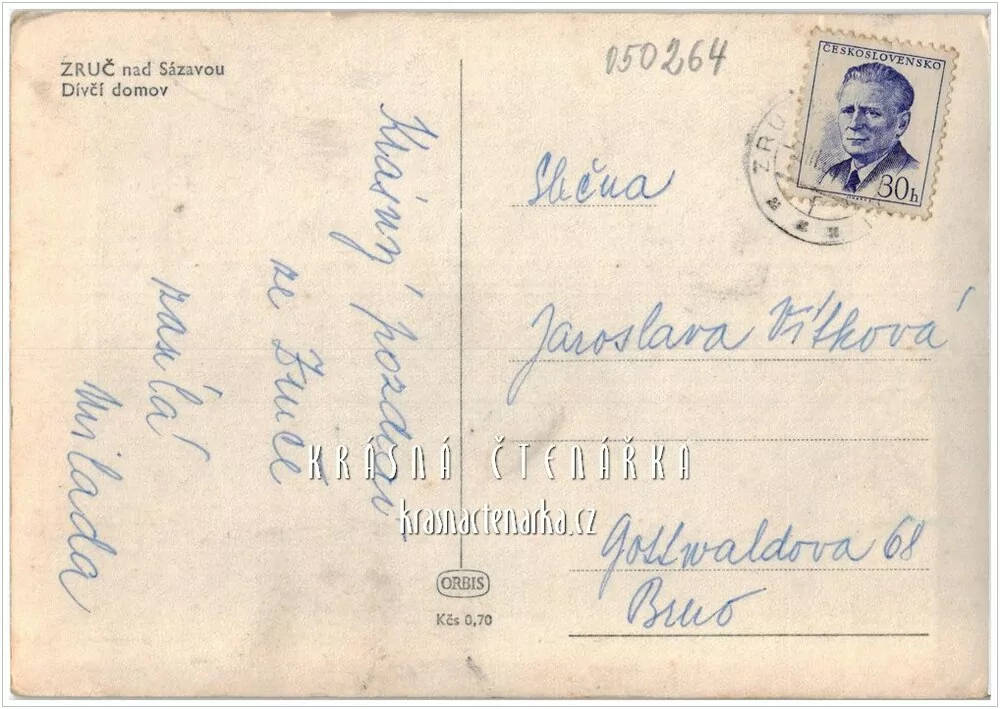 ZRUČ nad Sázavou
Dívčí domov
050264
ČESKOSLOVENSKO
30h
ZRU
Krásný pozdrav
ze Zruče
zasílá
Milada
Slečna
Jaroslava Vítková
KRÁSNÁ ČTENÁŘKA
krasnactenarka.cz
Gottwaldova 68
Brno
ORBIS
Kčs 0,70